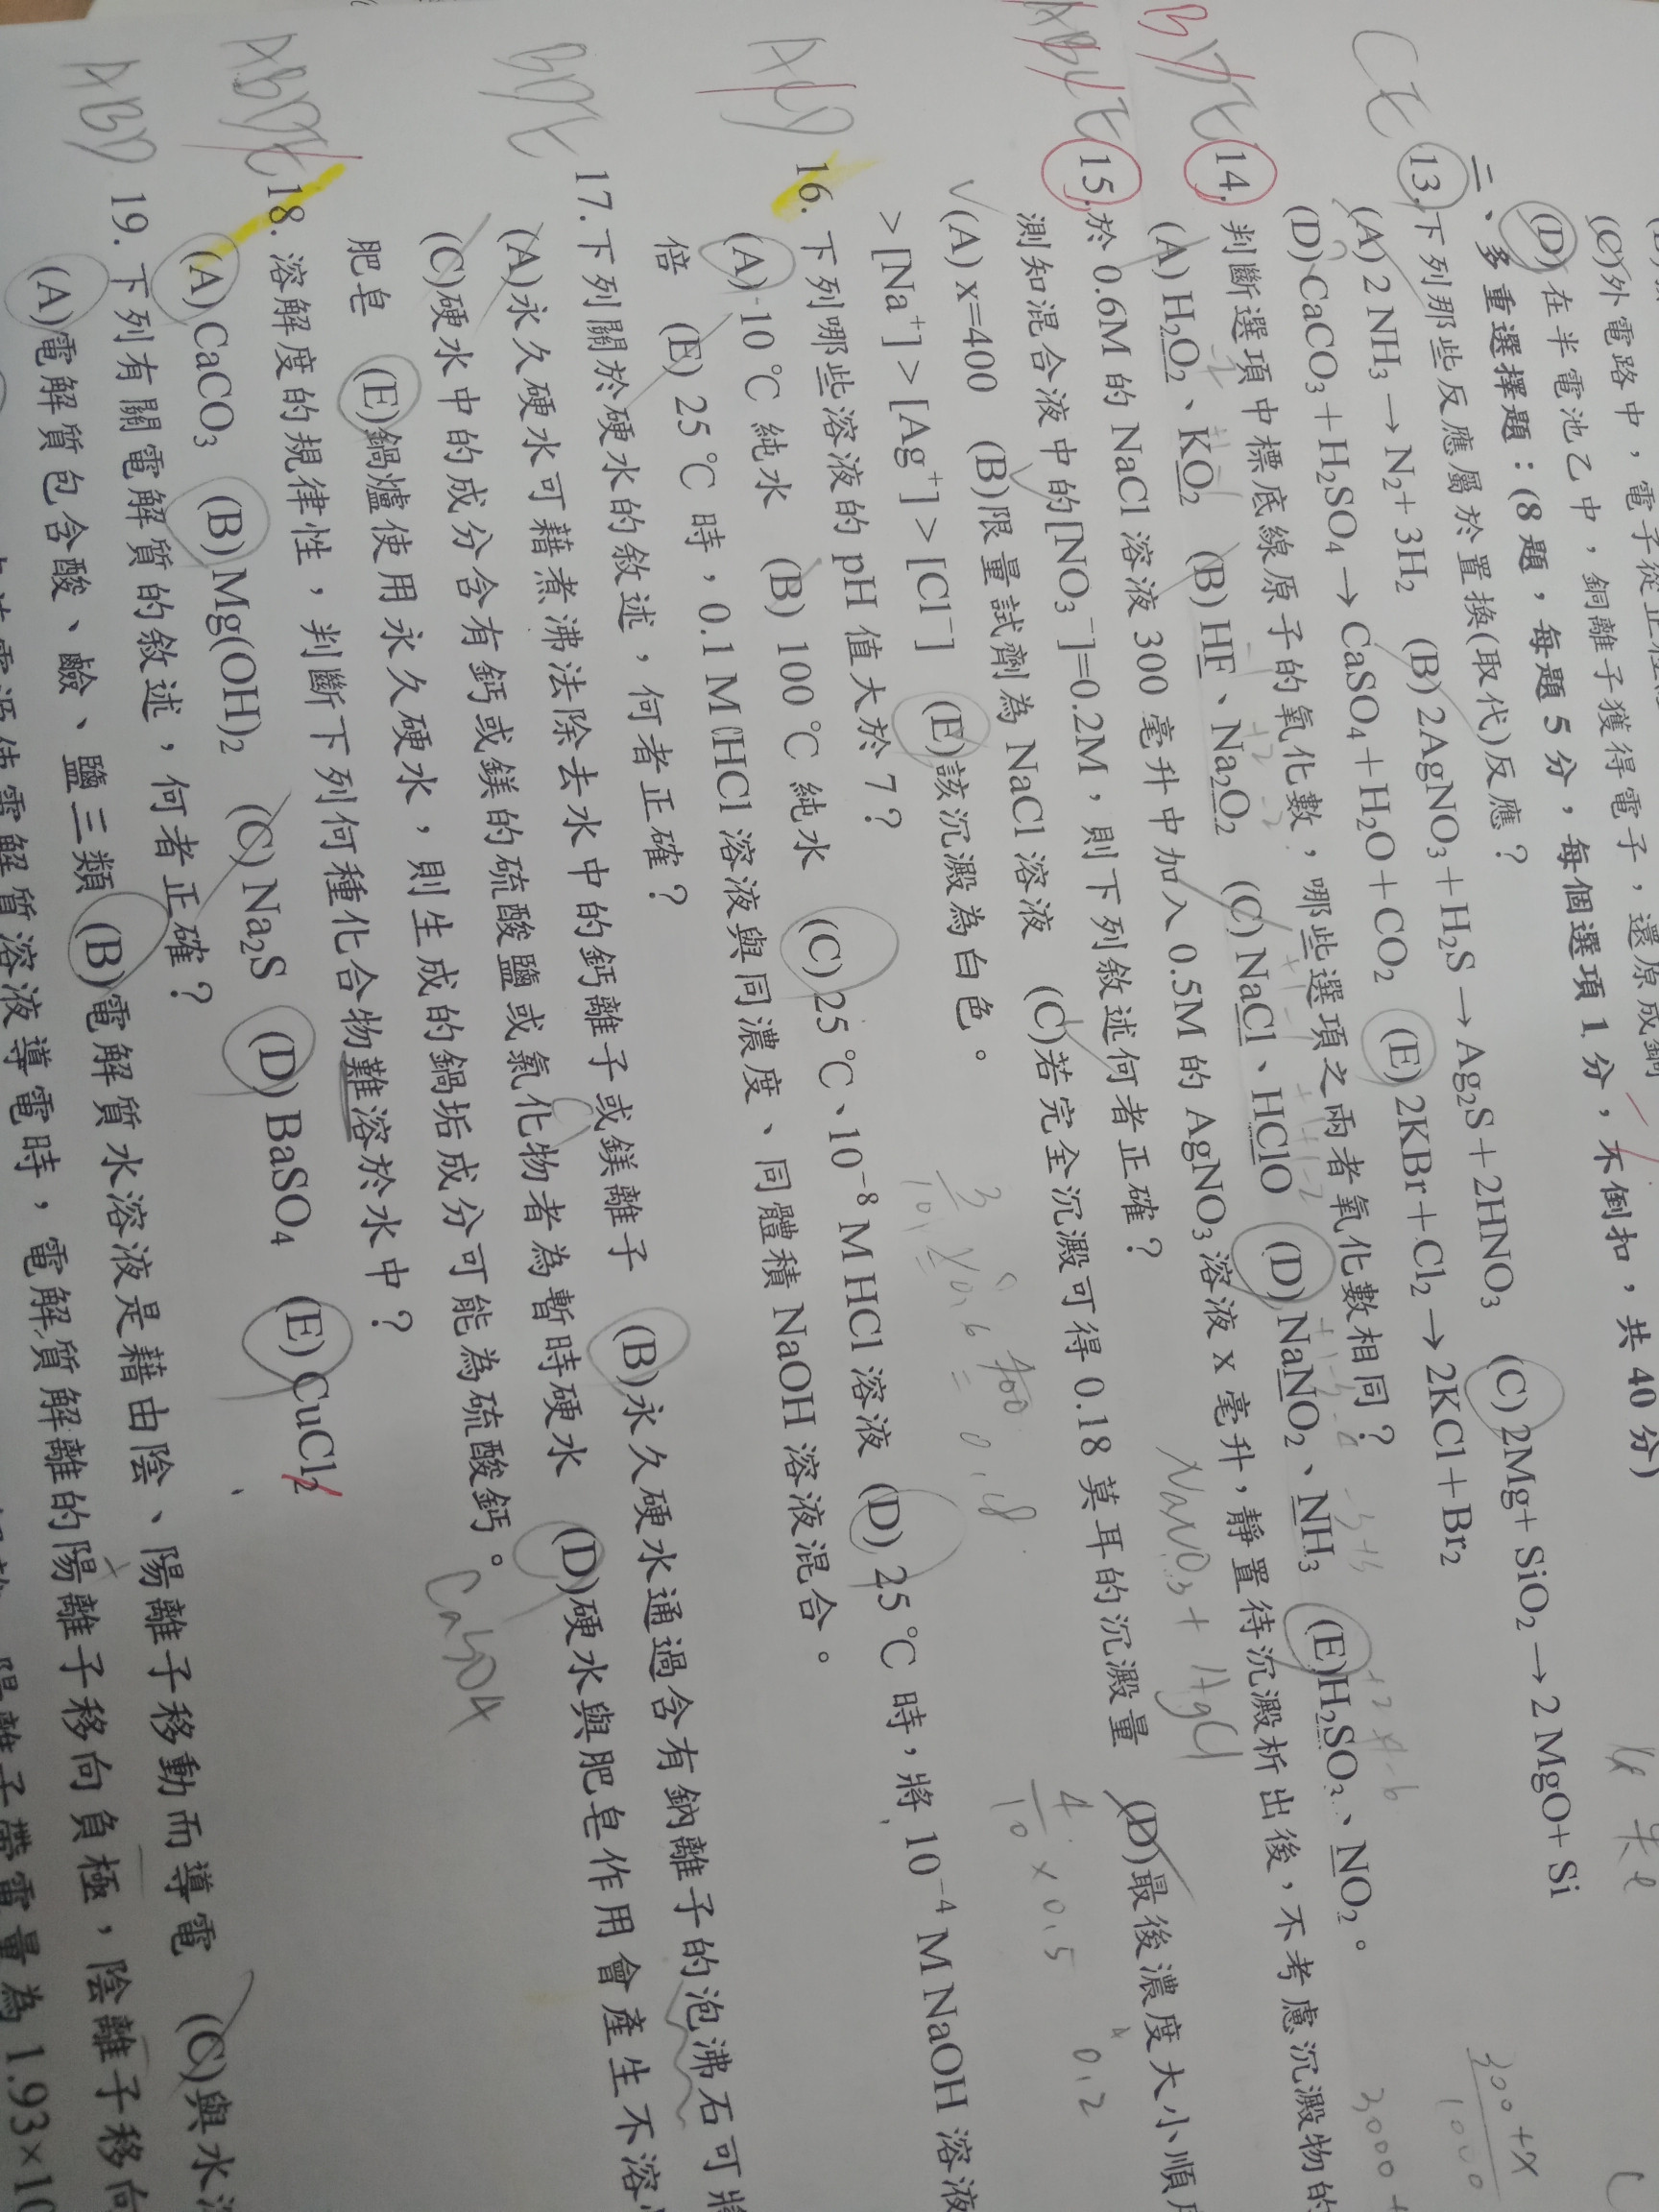 (C)外電路中，電子從正極
(D)在半電池乙中，銅離子獲得電子，還原成銅
二、多重選擇題：(8 題，每題 5 分，每個選項 1 分，不倒扣，共 40 分)
CE 13.下列那些反應屬於置換(取代)反應？
(A) 2 NH₃→N₂+3H₂ (B) 2AgNO₃+H₂S→Ag₂S+2HNO₃ (C) 2Mg+ SiO₂→2 MgO+ Si
(D) CaCO₃+H₂SO₄→CaSO₄+H₂O+CO₂ (E) 2KBr+Cl₂→2KCl+Br₂
14. 判斷選項中標底線原子的氧化數，哪些選項之兩者氧化數相同？
(A) H₂O₂、KO₂ (B) HF、Na₂O₂ (C) NaCl、HClO (D) NaNO₂、NH₃ (E)H₂SO₃、NO₂。
15.於 0.6M 的 NaCl 溶液 300 毫升中加入 0.5M 的 AgNO₃ 溶液 x 毫升，靜置待沉澱析出後，不考慮沉澱物的
測知混合液中的[NO₃⁻]=0.2M，則下列敘述何者正確？
(A) x=400 (B)限量試劑為 NaCl 溶液 (C)若完全沉澱可得 0.18 莫耳的沉澱量 (D)最後濃度大小順序
>[Na⁺]>[Ag⁺]>[Cl⁻] (E)該沉澱為白色。
NaNO₃ + AgCl
4/10 × 0.5
0.2
300+x/1000
ACD 16. 下列哪些溶液的 pH 值大於 7？
(A) 10 ℃ 純水 (B) 100 ℃ 純水 (C) 25 ℃、10⁻⁸ M HCl 溶液 (D) 25 ℃ 時，將 10⁻⁴ M NaOH 溶液
倍 (E) 25 ℃ 時，0.1 M HCl 溶液與同濃度、同體積 NaOH 溶液混合。
BDE 17.下列關於硬水的敘述，何者正確？
(A)永久硬水可藉煮沸法除去水中的鈣離子或鎂離子 (B)永久硬水通過含有鈉離子的泡沸石可將
(C)硬水中的成分含有鈣或鎂的硫酸鹽或氯化物者為暫時硬水 (D)硬水與肥皂作用會產生不溶
肥皂 (E)鍋爐使用永久硬水，則生成的鍋垢成分可能為硫酸鈣。
CaSO4
ABDE 18. 溶解度的規律性，判斷下列何種化合物難溶於水中？
(A) CaCO₃ (B) Mg(OH)₂ (C) Na₂S (D) BaSO₄ (E) CuCl₂
ABD 19. 下列有關電解質的敘述，何者正確？
(A)電解質包含酸、鹼、鹽三類 (B)電解質水溶液是藉由陰、陽離子移動而導電 (C)與水
電解質溶液導電時，電解質解離的陽離子移向負極，陰離子移向
陽離子帶電量為 1.93×10